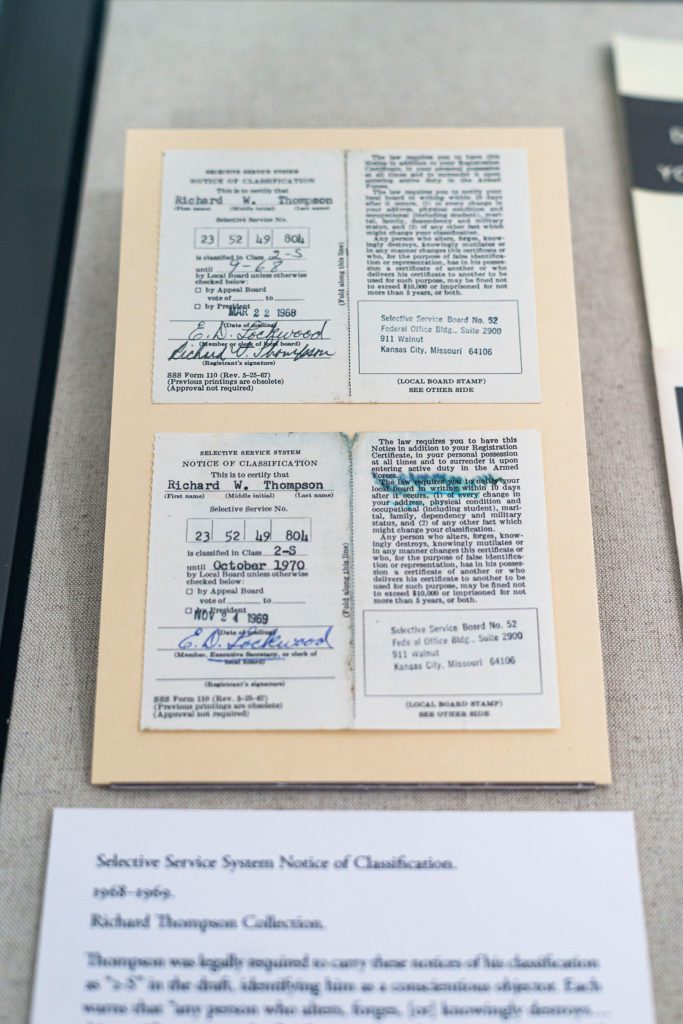 SELECTIVE SERVICE SYSTEM
NOTICE OF CLASSIFICATION
This is to certify that
Richard W. Thompson
(First name) (Middle initial) (Last name)
Selective Service No.
23 52 49 804
is classified in Class 2-S
until 9-68
by Local Board unless otherwise
checked below:
by Appeal Board
vote of to
by President
MAR 22 1968
(Date of mailing)
E. D. Lockwood
(Member or clerk of local board)
Richard W. Thompson
(Registrant's signature)
SSS Form 110 (Rev. 5-25-67)
(Previous printings are obsolete)
(Approval not required)
(Fold along this line)
The law requires you to have this
Notice in addition to your Registration
Certificate, in your personal possession
at all times and to surrender it upon
entering active duty in the Armed
Forces.
The law requires you to notify your
local board in writing within 10 days
after it occurs, (1) of every change in
your address, physical condition and
occupational (including student), mari-
tal, family, dependency and military
status, and (2) of any other fact which
might change your classification.
Any person who alters, forges, know-
ingly destroys, knowingly mutilates or
in any manner changes this certificate or
who, for the purpose of false identifica-
tion or representation, has in his posses-
sion a certificate of another or who
delivers his certificate to another to be
used for such purpose, may be fined not
to exceed $10,000 or imprisoned for not
more than 5 years, or both.
Selective Service Board No. 52
Federal Office Bldg., Suite 2900
911 Walnut
Kansas City, Missouri 64106
(LOCAL BOARD STAMP)
SEE OTHER SIDE
SELECTIVE SERVICE SYSTEM
NOTICE OF CLASSIFICATION
This is to certify that
Richard W. Thompson
(First name) (Middle initial) (Last name)
Selective Service No.
23 52 49 804
is classified in Class 2-S
until October 1970
by Local Board unless otherwise
checked below:
by Appeal Board
vote of to
by President
NOV 24 1969
(Date of mailing)
E. D. Lockwood
(Member, Executive Secretary, or clerk of
local board)
(Registrant's signature)
SSS Form 110 (Rev. 5-25-67)
(Previous printings are obsolete)
(Approval not required)
(Fold along this line)
The law requires you to have this
Notice in addition to your Registration
Certificate, in your personal possession
at all times and to surrender it upon
entering active duty in the Armed
Forces.
The law requires you to notify your
local board in writing within 10 days
after it occurs, (1) of every change in
your address, physical condition and
occupational (including student), mari-
tal, family, dependency and military
status, and (2) of any other fact which
might change your classification.
Any person who alters, forges, know-
ingly destroys, knowingly mutilates or
in any manner changes this certificate or
who, for the purpose of false identifica-
tion or representation, has in his posses-
sion a certificate of another or who
delivers his certificate to another to be
used for such purpose, may be fined not
to exceed $10,000 or imprisoned for not
more than 5 years, or both.
Selective Service Board No. 52
Federal Office Bldg., Suite 2900
911 Walnut
Kansas City, Missouri 64106
(LOCAL BOARD STAMP)
SEE OTHER SIDE
Selective Service System Notice of Classification.
1968–1969.
Richard Thompson Collection.
Thompson was legally required to carry these notices of his classification
as "2-S" in the draft, identifying him as a conscientious objector. Each
warns that "any person who alters, forges, [or] knowingly destroys...
YO